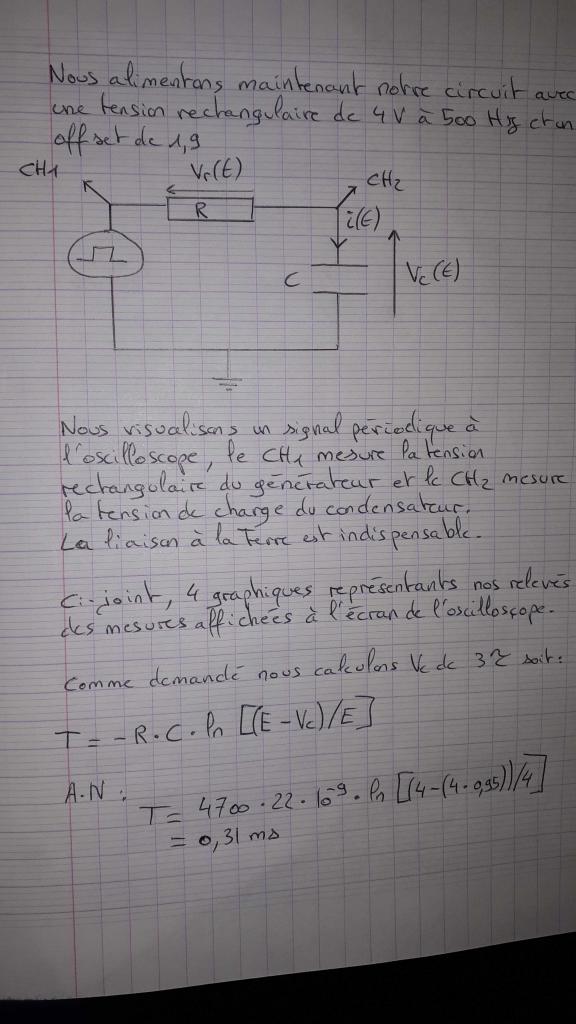 Nous alimentons maintenant notre circuit avec
une tension rectangulaire de 4 V à 500 Hz et un
offset de 1,9
CH1
Vr(t)
CH2
R
i(t)
C
Vc(t)
Nous visualisons un signal périodique à
l'oscilloscope, le CH1 mesure la tension
rectangulaire du générateur et le CH2 mesure
la tension de charge du condensateur.
La liaison à la Terre est indispensable.
Ci-joint, 4 graphiques représentants nos relevés
des mesures affichées à l'écran de l'oscilloscope.
Comme demandé nous calculons Vc de 3τ soit:
T = -R·C·ln [(E-Vc)/E]
A.N: T = 4700·22·10⁻⁹·ln [(4-(4·0,95))/4]
= 0,31 ms